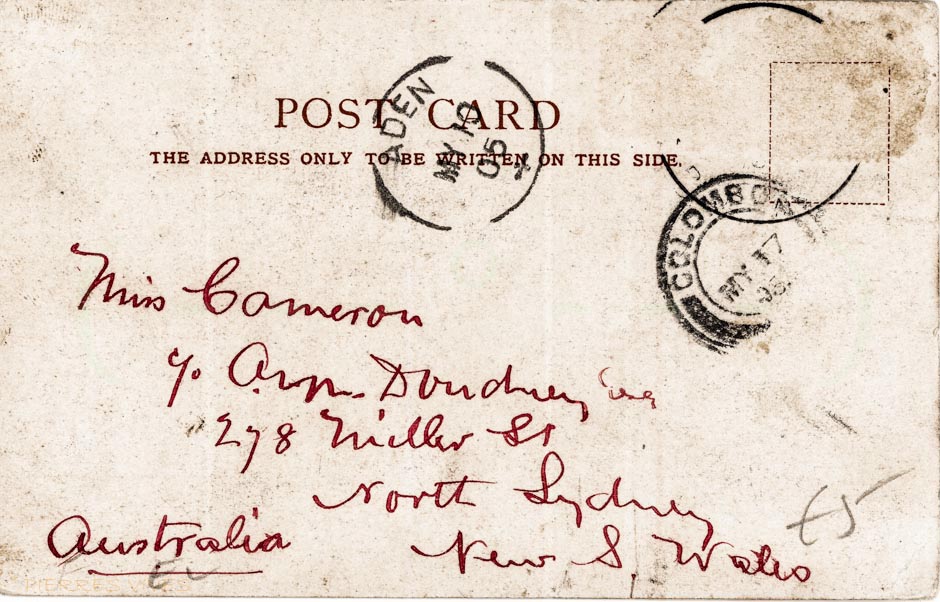 POST CARD
THE ADDRESS ONLY TO BE WRITTEN ON THIS SIDE.
ADEN
MY 10
05
COLOMBO
MY 17
05
Miss Cameron
c/o Doudney Esq
278 Miller St
North Sydney
New S. Wales
Australia
£5